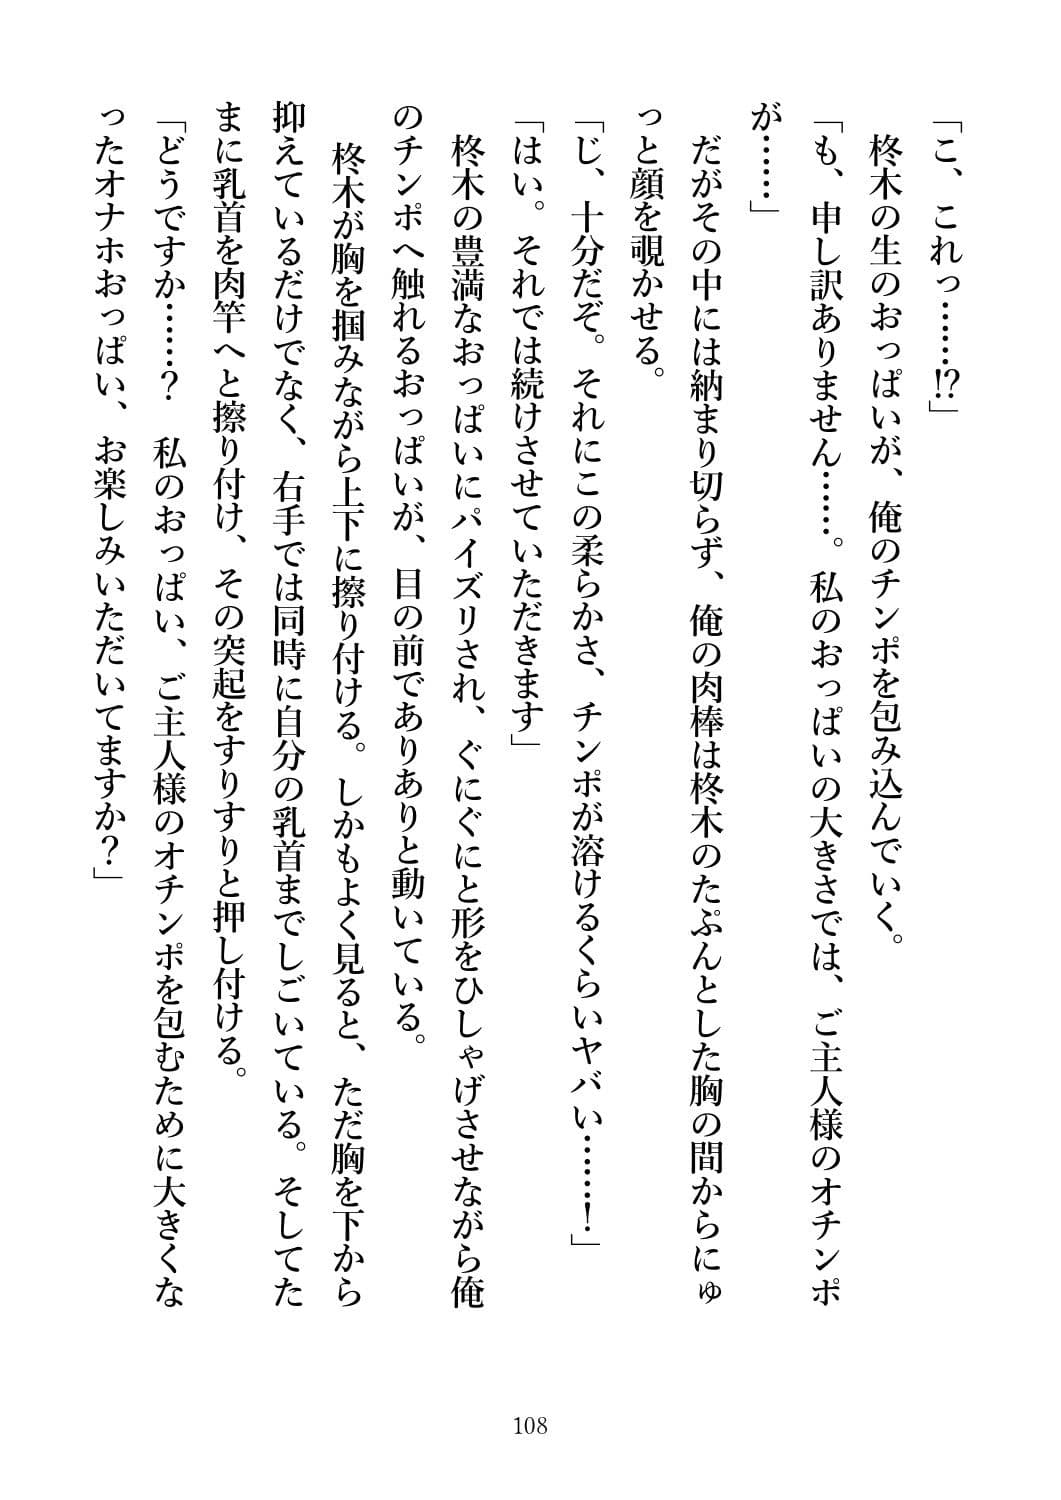 「こ、これっ……!?」
　柊木の生のおっぱいが、俺のチンポを包み込んでいく。
「も、申し訳ありません……。私のおっぱいの大きさでは、ご主人様のオチンポ
が……」
　だがその中には納まり切らず、俺の肉棒は柊木のたぷんとした胸の間からにゅ
っと顔を覗かせる。
「じ、十分だぞ。それにこの柔らかさ、チンポが溶けるくらいヤバい……！」
「はい。それでは続けさせていただきます」
　柊木の豊満なおっぱいにパイズリされ、ぐにぐにと形をひしゃげさせながら俺
のチンポへ触れるおっぱいが、目の前でありありと動いている。
　柊木が胸を掴みながら上下に擦り付ける。しかもよく見ると、ただ胸を下から
抑えているだけでなく、右手では同時に自分の乳首までしごいている。そしてた
まに乳首を肉竿へと擦り付け、その突起をすりすりと押し付ける。
「どうですか……？　私のおっぱい、ご主人様のオチンポを包むために大きくな
ったオナホおっぱい、お楽しみいただいてますか？」
108